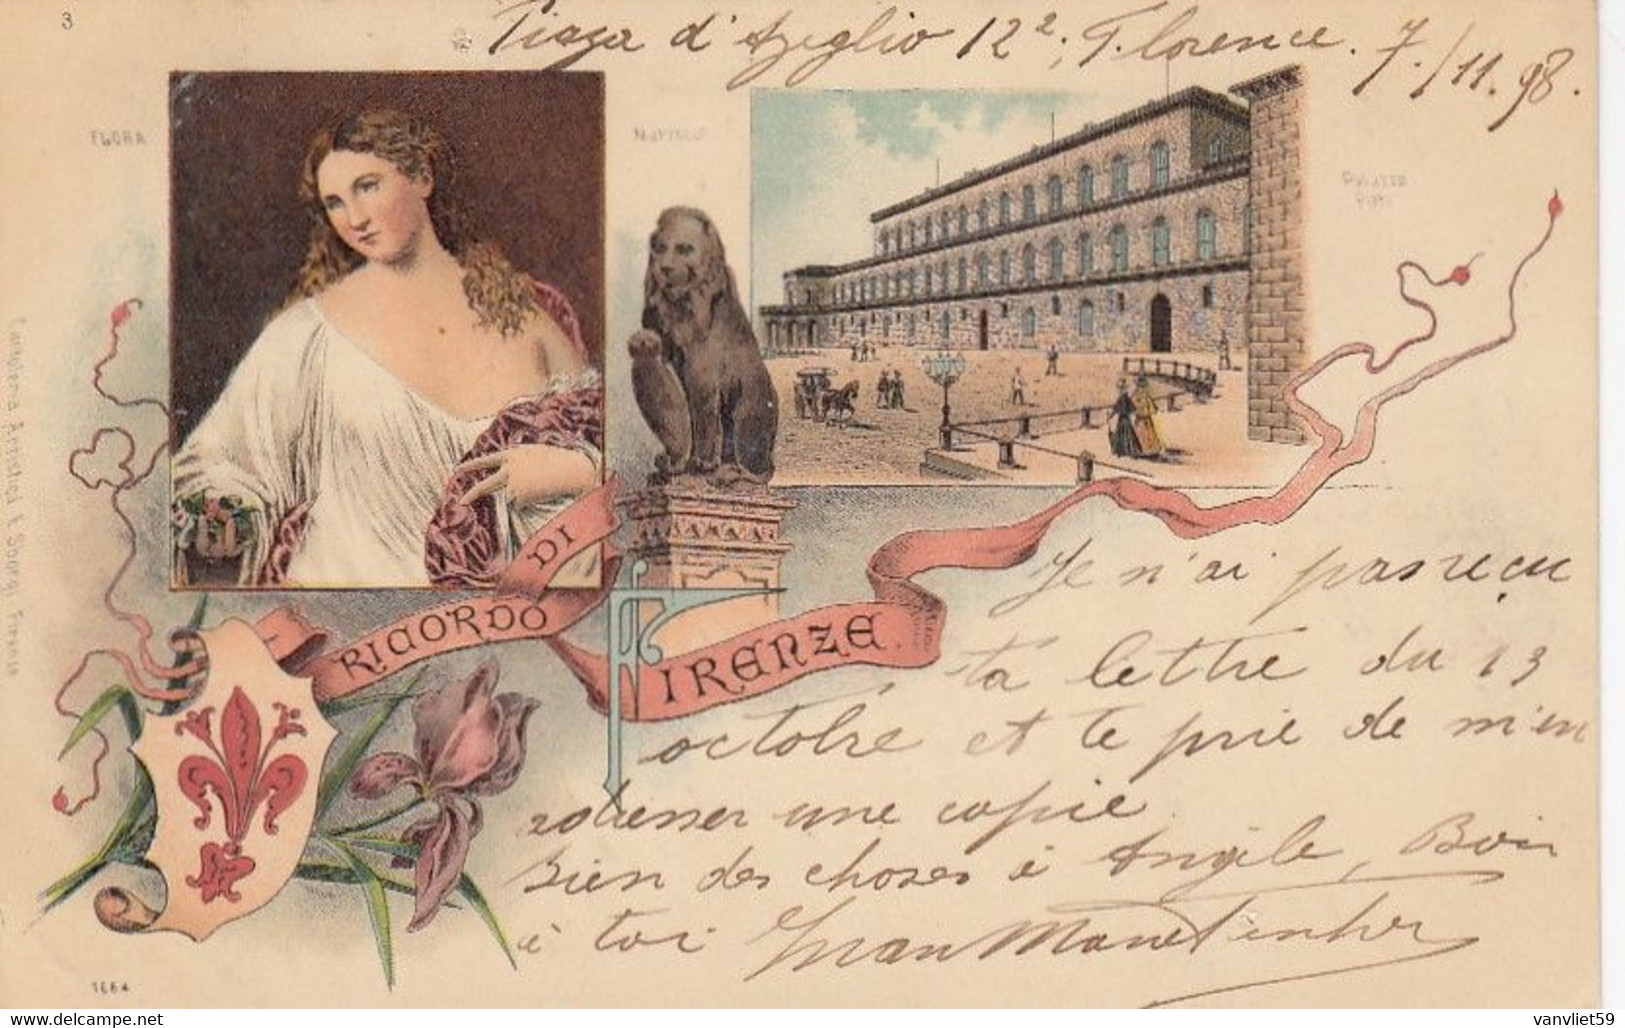 3
Piazza d'Azeglio 12², Florence. 7/11.98.
FLORA
Marzocco
Palazzo
Pitti
RICORDO DI
FIRENZE
Je n'ai pas reçu
ta lettre du 13
octobre et te prie de m'en
adresser une copie
Bien des choses à Angèle, Bien
à toi
1664
vanvliet59